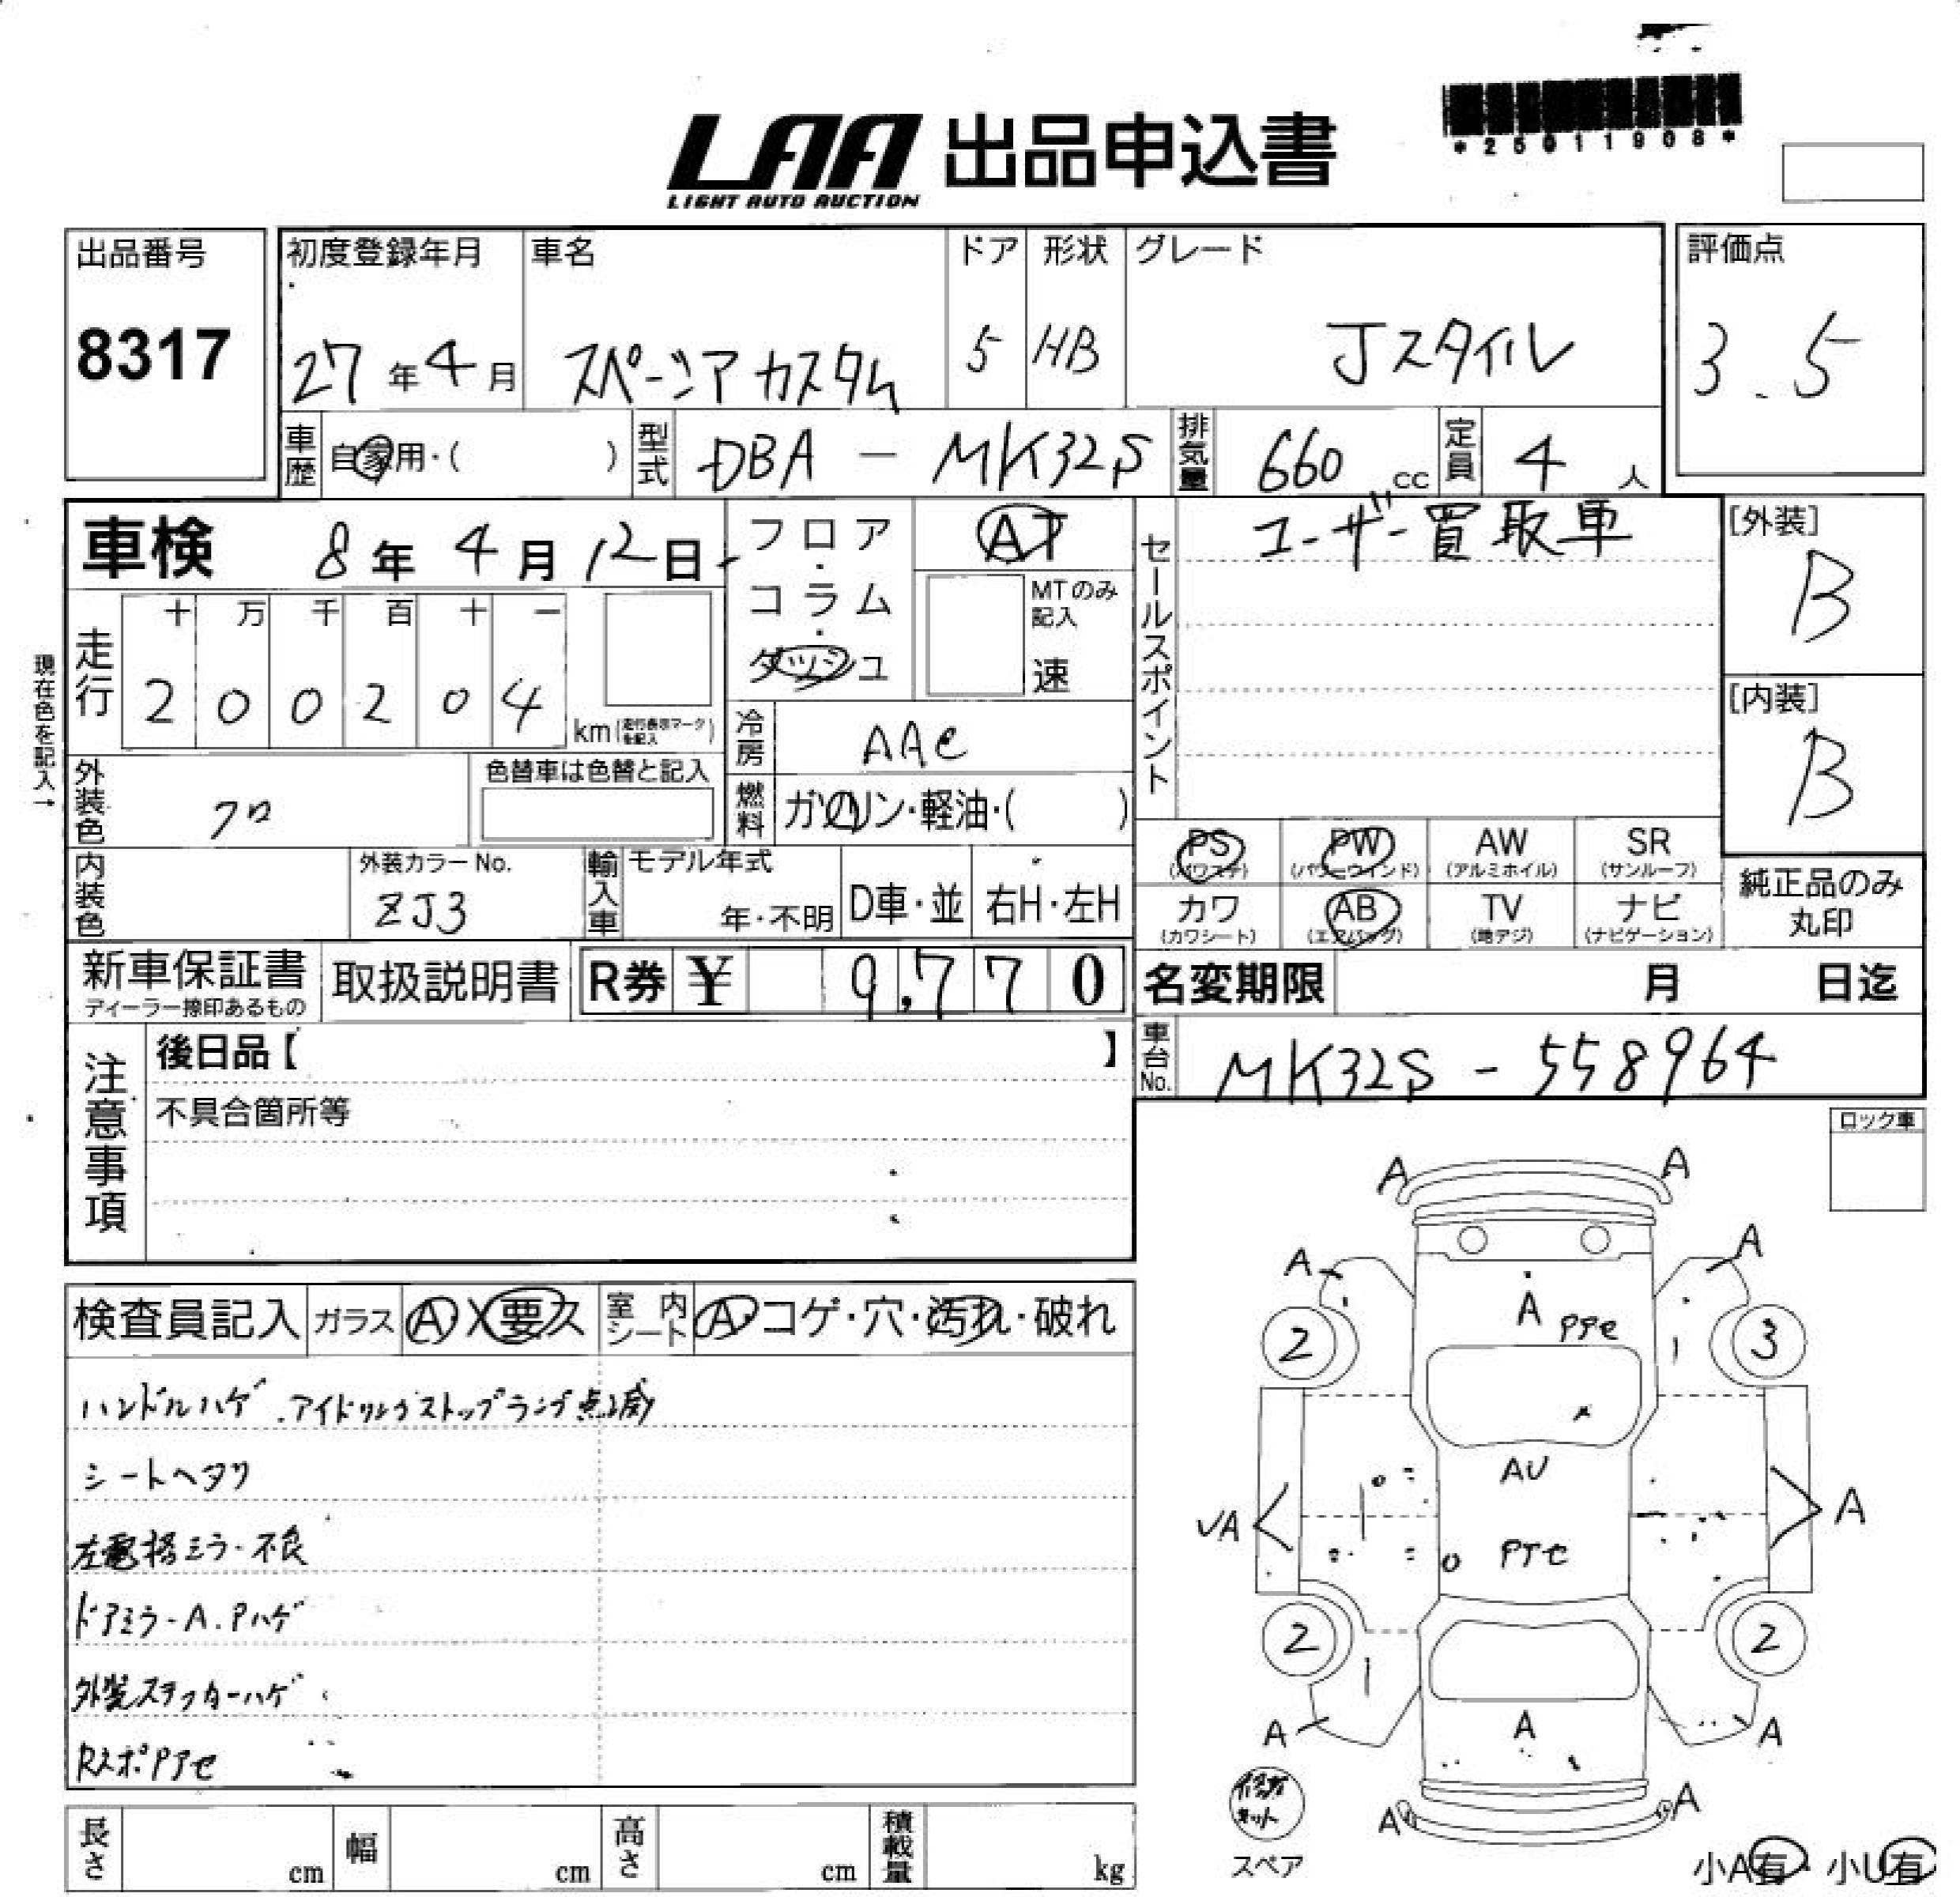 *25011908*
LAA 出品申込書
LIGHT AUTO AUCTION
出品番号
8317
初度登録年月
27年4月
車名
スペーシア カスタム
ドア
5
形状
HB
グレード
Jスタイル
評価点
3.5
車歴
自家用・( )
型式
DBA - MK32S
排気量
660 cc
定員
4 人
車検 8年 4月 12日
フロア・コラム・ダッシュ
AT
MTのみ記入
速
走行
十 万 千 百 十 一
2 0 0 2 0 4
km(走行表示マークを記入)
現在色を記入→
冷房
AAC
燃料
ガソリン・軽油・( )
外装色
クロ
色替車は色替と記入
内装色
外装カラーNo.
ZJ3
輸入車
モデル年式
年・不明
D車・並
右H・左H
セールスポイント
ユーザー買取車
[外装]
B
[内装]
B
PS
(パワステ)
PW
(パワーウインド)
AW
(アルミホイル)
SR
(サンルーフ)
カワ
(カワシート)
AB
(エアバッグ)
TV
(地デジ)
ナビ
(ナビゲーション)
純正品のみ
丸印
新車保証書
ディーラー捺印あるもの
取扱説明書
R券 ¥ 9,770
名変期限 月 日迄
車台No.
MK32S - 558964
注意事項
後日品【 】
不具合箇所等
ロック車
検査員記入
ガラス
A X 要ス
室内シート
A・コゲ・穴・汚れ・破れ
ハンドルハゲ.アイドリングストップランプ点滅
シートヘタリ
左電格ミラー不良
ドアミラーA.Pハゲ
外装ステッカーハゲ
RスポPアセ
A A
A A
A Pアセ
2 3
AU
UA A
Pアセ
2 2
A A A
A A
修理キット
スペア
小A有・小U有
長さ cm
幅 cm
高さ cm
積載量 kg